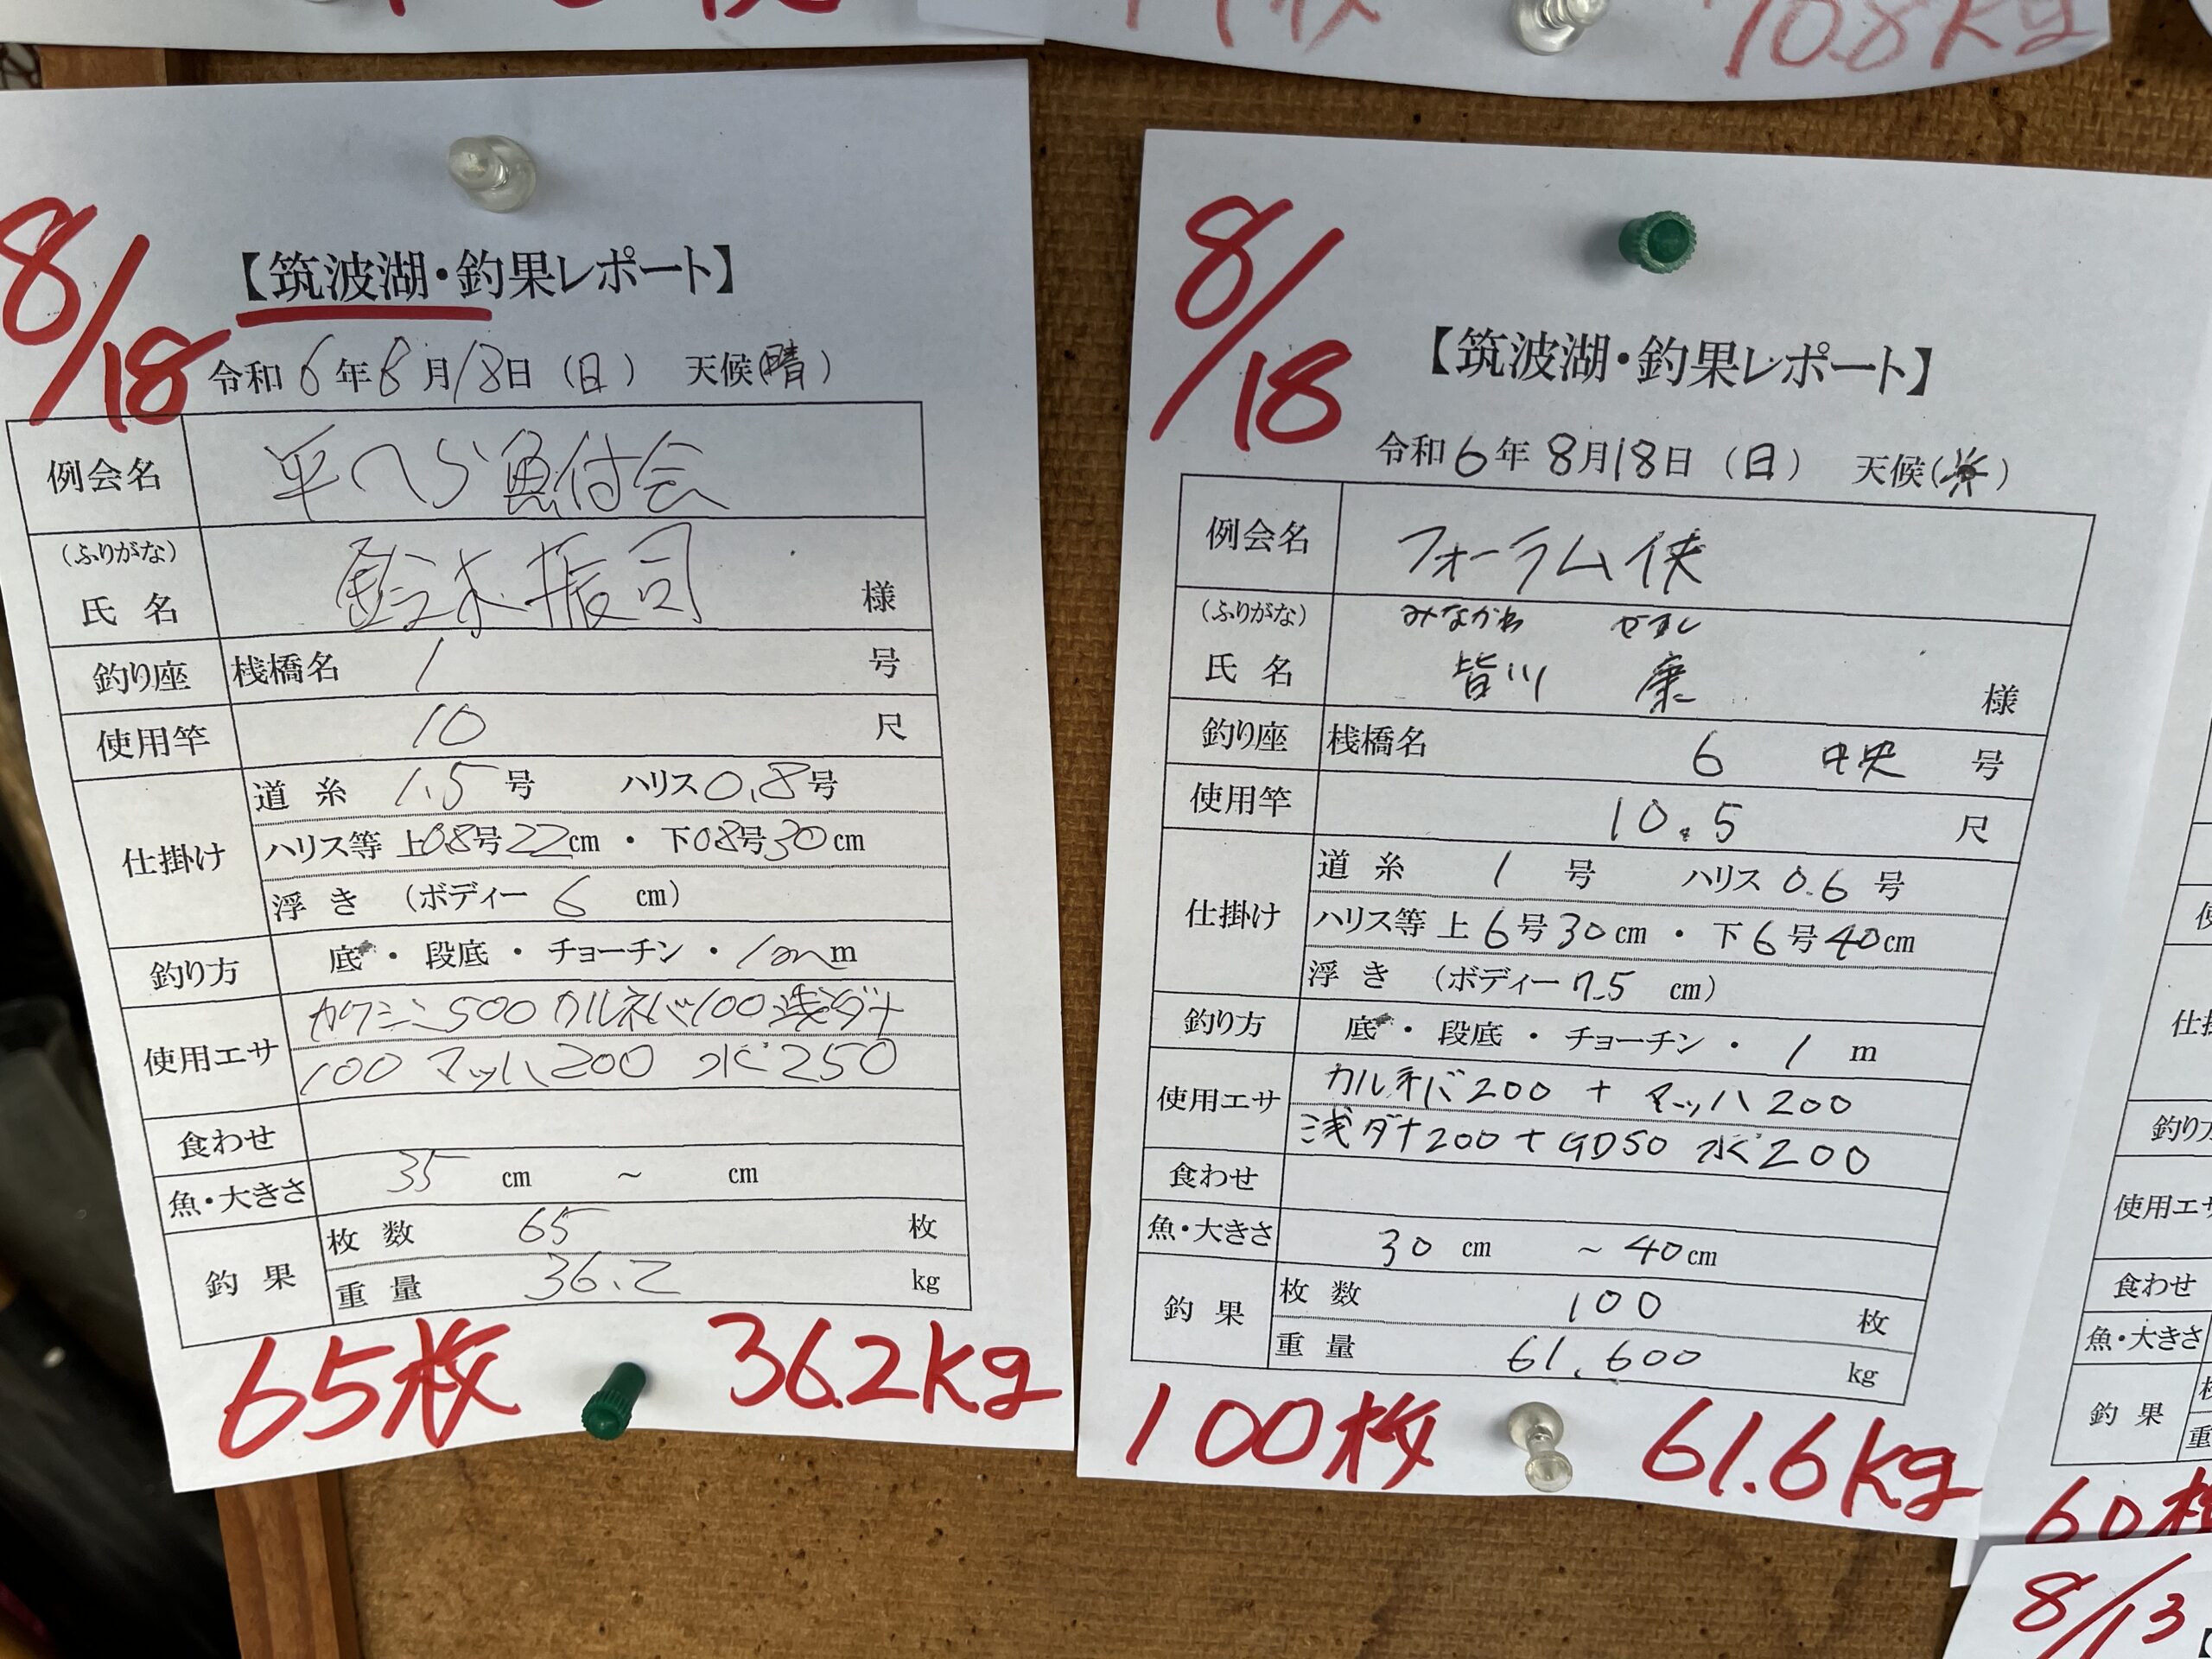 708kg
8/18
【筑波湖・釣果レポート】
令和6年8月18日（日） 天候（晴）
例会名 平へら魚付会
（ふりがな）
氏名 鈴木振司 様
釣り座 桟橋名 1 号
使用竿 10 尺
仕掛け 道糸 1.5号 ハリス0.8号
ハリス等 上0.8号22cm ・ 下0.8号30cm
浮き （ボディー 6 cm）
釣り方 底・段底・チョーチン・1mm
使用エサ カクシン500カルネバ100浅ダナ
100 マッハ200 水250
食わせ
魚・大きさ 35 cm ～ cm
釣果 枚数 65 枚
重量 36.2 kg
65枚 36.2kg
8/18
【筑波湖・釣果レポート】
令和6年8月18日（日） 天候（）
例会名 フォーラム侠
（ふりがな） みながわ やすし
氏名 皆川 康 様
釣り座 桟橋名 6 中央 号
使用竿 10.5 尺
仕掛け 道糸 1 号 ハリス 0.6 号
ハリス等 上6号30cm ・ 下6号40cm
浮き （ボディー7.5 cm）
釣り方 底・段底・チョーチン・1 m
使用エサ カルネバ200 + マッハ200
浅ダナ200+GD50 水200
食わせ
魚・大きさ 30 cm ～40cm
釣果 枚数 100 枚
重量 61.600 kg
100枚 61.6kg
仕掛
釣り方
使用エサ
食わせ
魚・大きさ
釣果
重
60枚
8/13